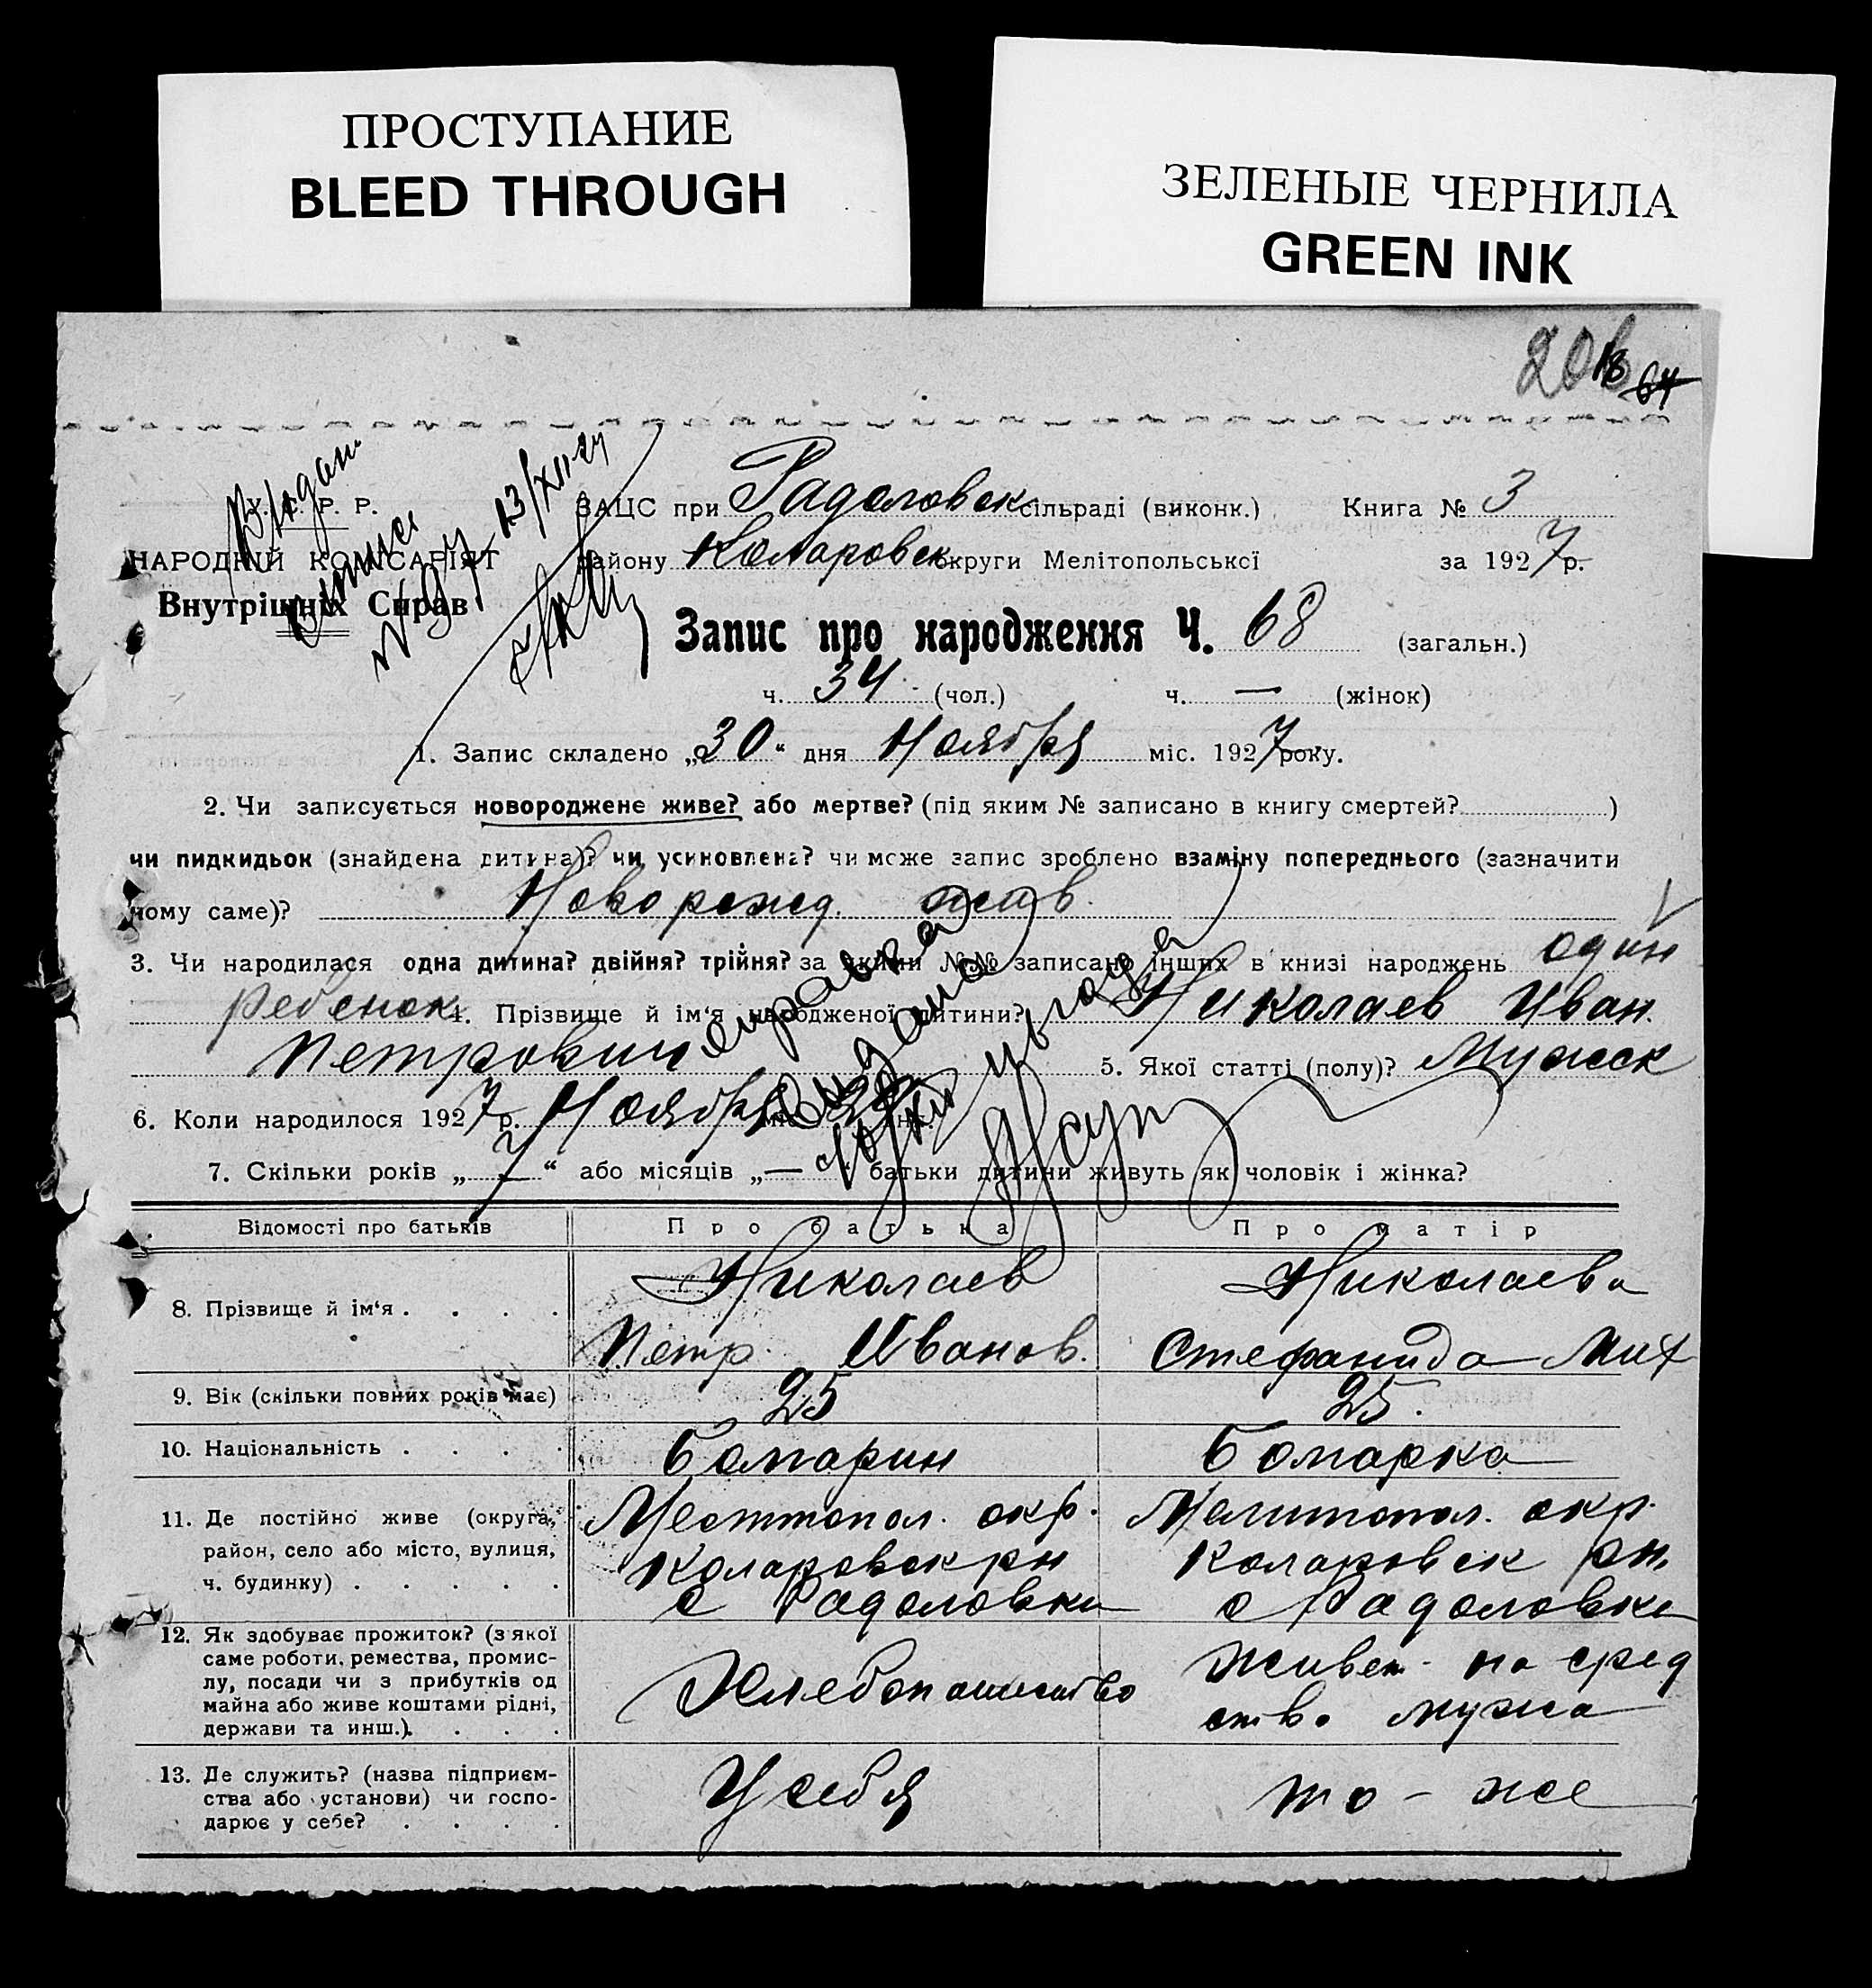 ПРОСТУПАНИЕ
BLEED THROUGH
ЗЕЛЕНЫЕ ЧЕРНИЛА
GREEN INK
64
У. С. Р. Р.
НАРОДНІЙ КОМІСАРІЯТ
Внутрішніх Справ
ЗАЦС при Радоловск сільраді (виконк.) Книга № 3
району Коларовск округи Мелітопольської за 1927 р.
Запис про народження Ч. 68 (загальн.)
ч. 34 (чол.) ч. — (жінок)
1. Запис складено „30“ дня Ноября міс. 1927 року.
2. Чи записується новороджене живе? або мертве? (під яким № записано в книгу смертей? )
чи пидкидьок (знайдена дитина)? чи усиновлена? чи може запис зроблено взаміну попереднього (зазначити
чому саме)? Новорожд. жив.
3. Чи народилася одна дитина? двійня? трійня? за якими №№ записано інших в книзі народжень один
ребенок 4. Прізвище й ім'я народженої дитини? Николаев Иван
Петрович 5. Якої статті (полу)? Мужск
6. Коли народилося 1927 р. Ноября міс.
7. Скільки років „7“ або місяців „—“ батьки дитини живуть як чоловік і жінка?
справка
выдана
Відомості про батьків Про батька Про матір
8. Прізвище й ім'я . . . . Николаев Николаева
Петр Иванов. Стефанида Мих
9. Вік (скільки повних років має) 25 25.
10. Національність . . . . Болгарин Болгарка
11. Де постійно живе (округа, район, село або місто, вулиця, ч. будинку) . . . . .
Мелитопол. окр. Мелитопол. окр.
Коларовск рн Коларовск рн.
с Радоловки с Радоловке
12. Як здобуває прожиток? (з якої
саме роботи, ремества, промис-
лу, посади чи з прибутків од
майна або живе коштами рідні,
держави та инш.). . . .
Хлебопашество Живет на сред
ство мужа
13. Де служить? (назва підприєм-
ства або установи) чи госпо-
дарює у себе? . . . .
У себя то-же